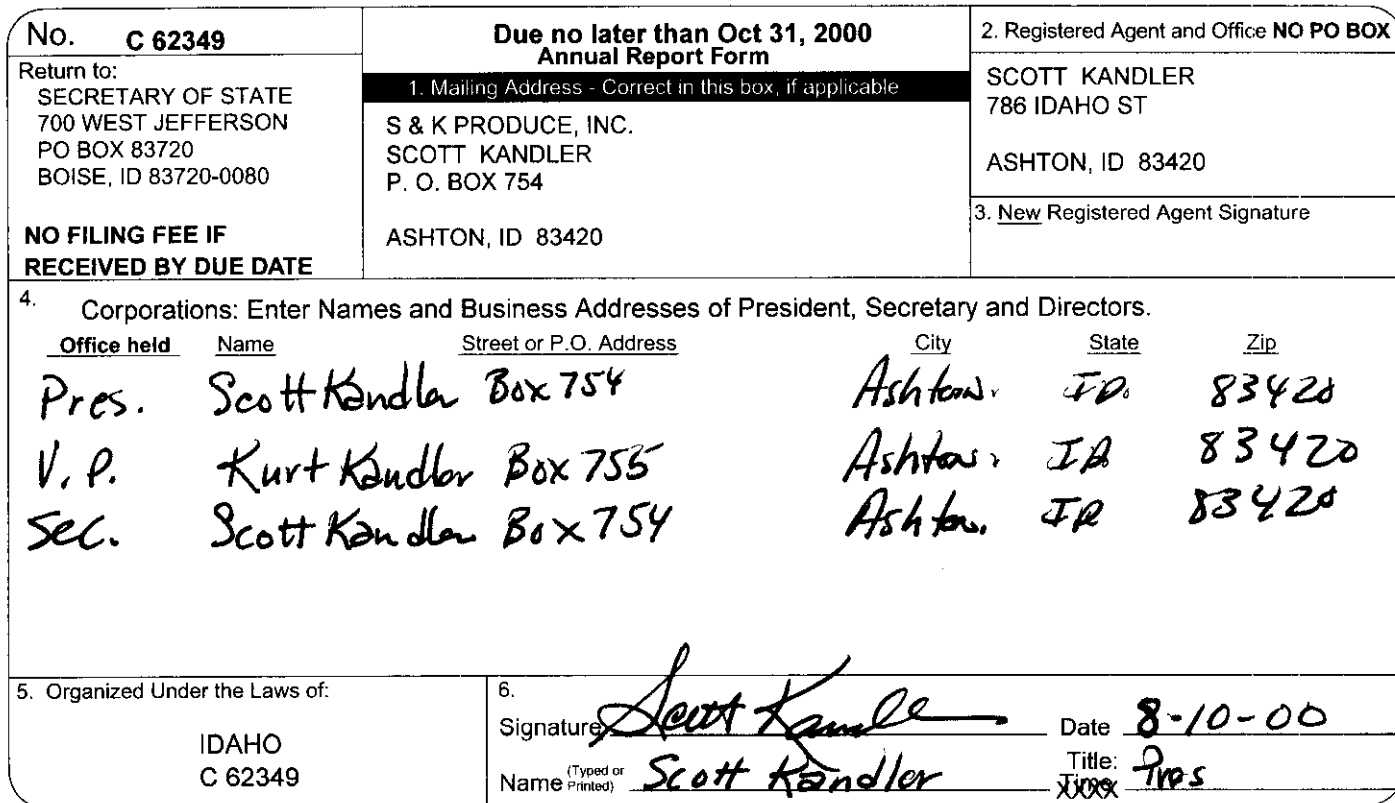 No. C 62349
Return to:
SECRETARY OF STATE
700 WEST JEFFERSON
PO BOX 83720
BOISE, ID 83720-0080
NO FILING FEE IF
RECEIVED BY DUE DATE
Due no later than Oct 31, 2000
Annual Report Form
1. Mailing Address - Correct in this box, if applicable
S & K PRODUCE, INC.
SCOTT KANDLER
P. O. BOX 754
ASHTON, ID 83420
2. Registered Agent and Office NO PO BOX
SCOTT KANDLER
786 IDAHO ST
ASHTON, ID 83420
3. New Registered Agent Signature
4. Corporations: Enter Names and Business Addresses of President, Secretary and Directors.
Office held Name Street or P.O. Address City State Zip
Pres. Scott Kandler Box 754 Ashton. ID. 83420
V.P. Kurt Kandler Box 755 Ashton. ID 83420
Sec. Scott Kandler Box 754 Ashton. ID 83420
5. Organized Under the Laws of:
IDAHO
C 62349
6.
Signature Scott Kandler Date 8-10-00
Name (Typed or Printed) Scott Kandler Title: Pres